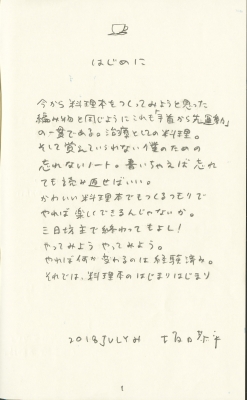 はじめに
今から料理本をつくってみようと思った
編み物と同じようにこれも「手首から先運動」
の一貫である。治療としての料理。
そして覚えていられない僕のための
忘れないノート。書いちゃえば忘れ
ても読み返せばいい。
かわいい料理本でもつくるつもりで
やれば楽しくできるんじゃないか。
三日坊主で終わってもよし!
やってみよう やってみよう。
やれば何か変わるのは経験済み。
それでは、料理本のはじまりはじまり
2018 JULY 24 坂口恭平
1